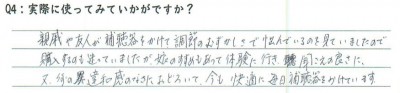 Q4：実際に使ってみていかがですか？
親戚や友人が補聴器をかけて調節のむずかしさで悩んでいるのを見ていましたので
購入するのを迷っていましたが姉のすすめもあって体験に行き、聴こえの良さに、
又、耳の異違和感のなさにおどろいて、今も快適に毎日補聴器をかけています